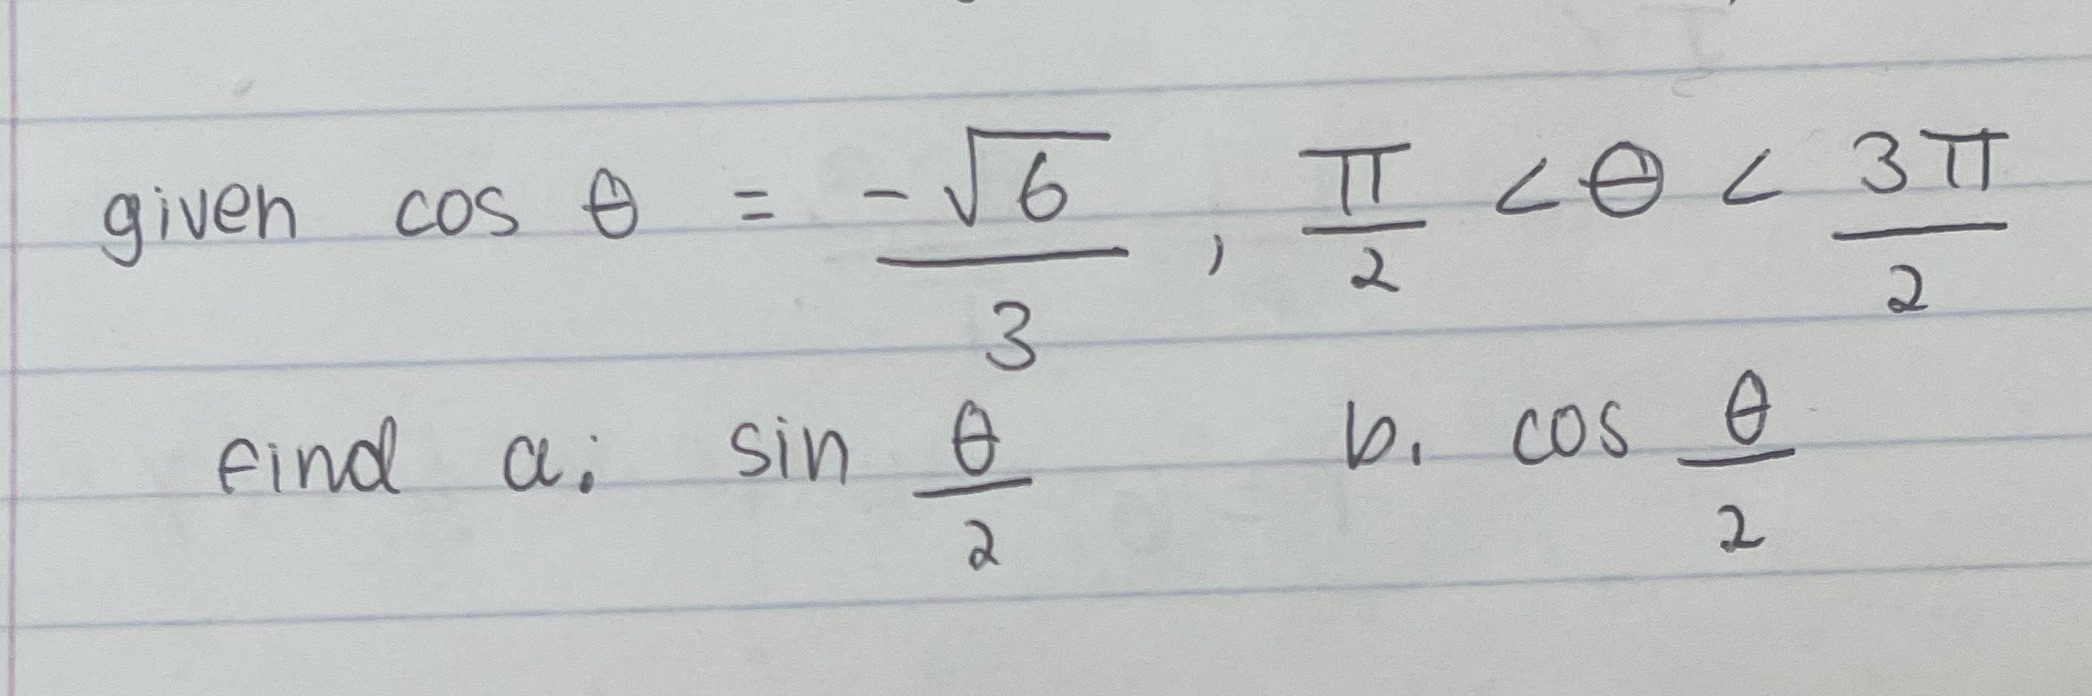 given cos θ = -√6/3, π/2 < θ < 3π/2
find a. sin θ/2 b. cos θ/2